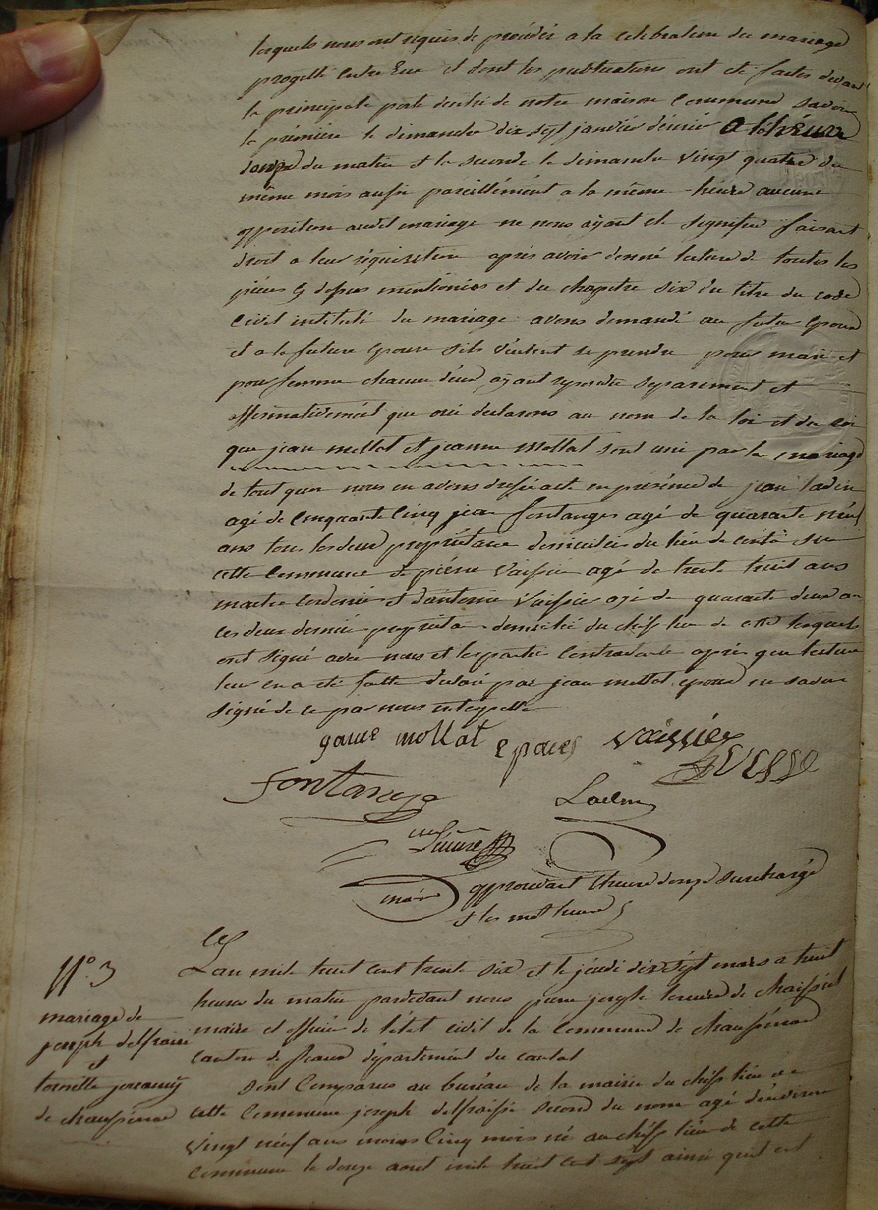 lesquels nous ont requis de procéder a la celebration du mariage
progetté entre Eux et dont les publications ont été faites devant
la principale porte d'entré de notre maison Commune savoir
la premiere le dimanche dix sept janvier dernier a l'heure
donze du matin et la seconde le dimanche vingt quatre du
même mois aussi pareillément a la même heure aucune
opposition audit mariage ne nous ayant été signifiée faisant
droit a leur réquisition après avoir donné lecture de toutes les
pièces cy dessus mentionées et du chapitre six du titre du code
Civil intitulé du mariage avons demandé au futur Epoux
et a la future Epouse sils véulent se prendre pour mari et
pour femme chacun d'eux ayant repondu separement et
affirmativemént que oui declarons au nom de la loi
que jean mollat et jeanne mollat sont uni par le mariage
de tout quoi nous en avons dressé acte en présence de jean
agé de Cinquante Cinq jean fontanges agé de quarante néuf
ans tous les deux propriétaire domiciliés du lieu de
cette Commune de pierre Vaissier agé de trente huit ans
maitre cordonnier et d'antoine Vaissier agé de quarante deux
ces deux dernier propriétaire domicilié du chéf lieu de cette lesquels
ont signé avec nous et les partie Contractante après que lecture
leur en a été faitte excepté jean mollat epoux ne savoir
signé de ce par nous interpellé
mollat epouse vaissier
fontange
maire approuvant l'heure donze surchargé
et les mot heure
N.º 3
mariage de
joseph delfraissi
et
de chaussenac
Lan mile huit cent trente six et le jeudi dix sept mars a huit
heures du matin pardevant nous
maire et officier de l'état civil de la Commune de chaussenac
canton de pleaux département du cantal
sont Comparus au buréau de la mairie du chéf lieu de
cette Commune joseph delfraissi second du nom agé d'environ
vingt néuf ans moins Cinq mois né au chéf lieu de cette
commune le douze aout mile huit cent sept ainsi quil est